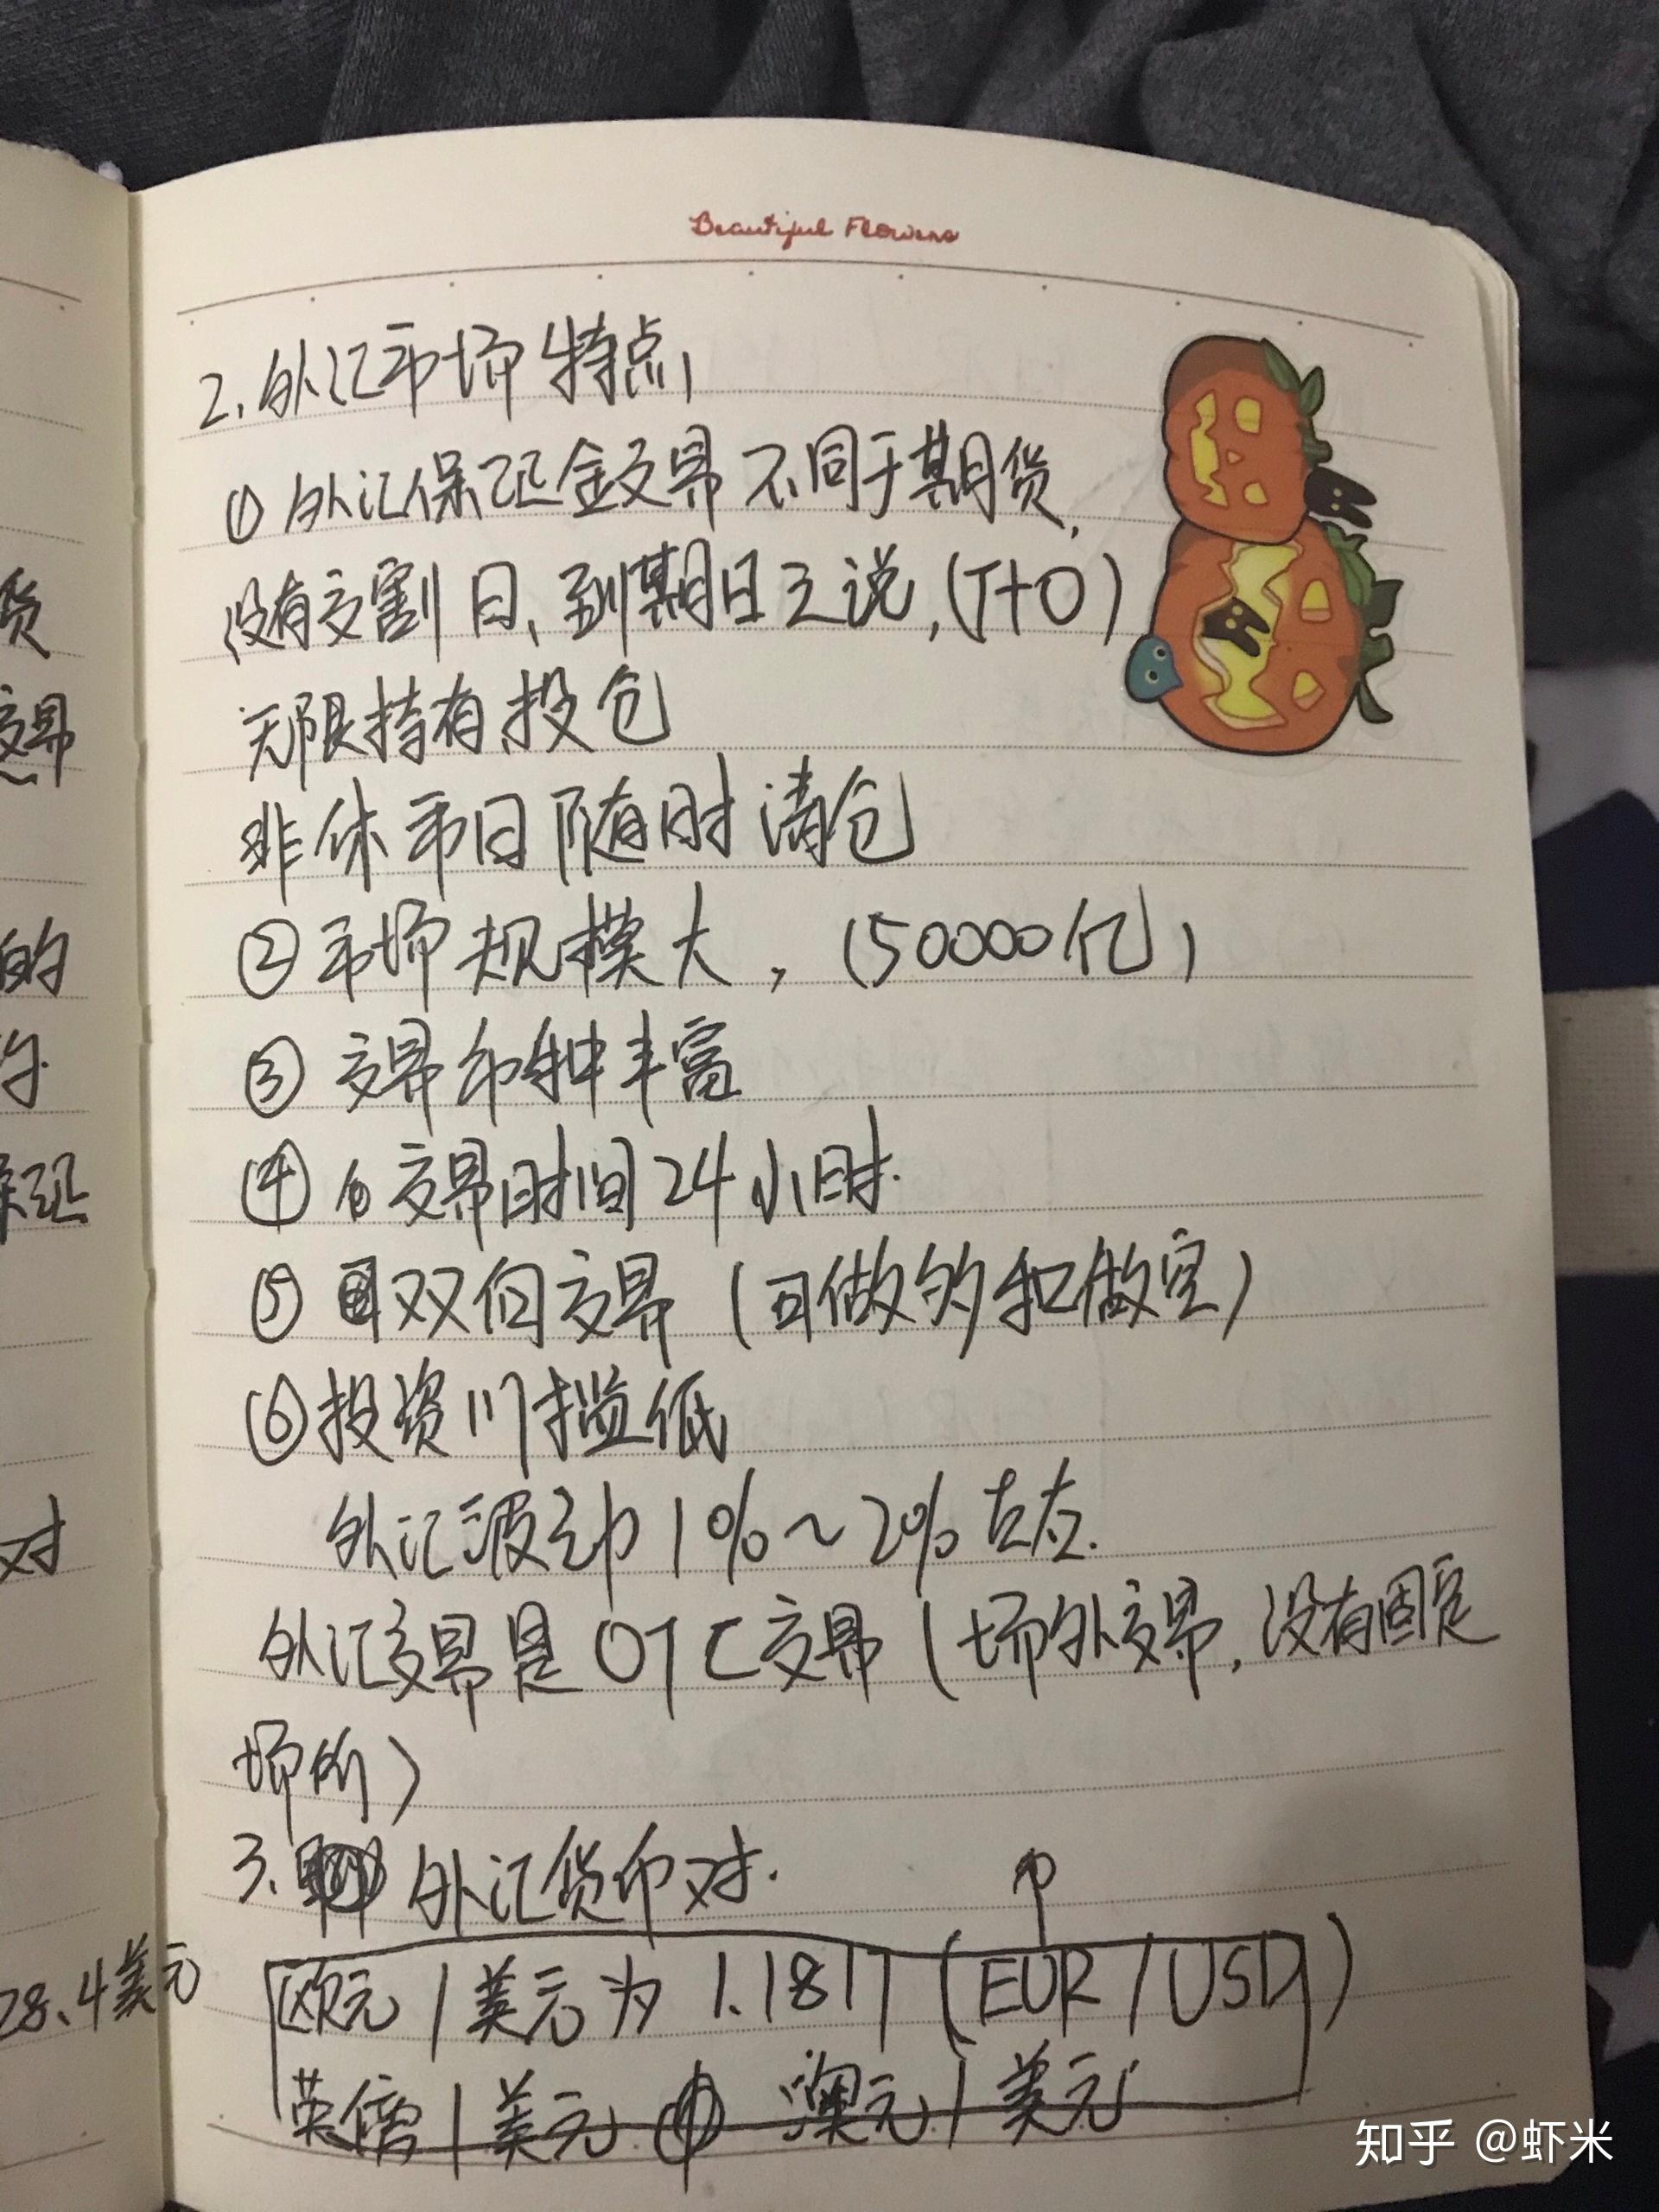 Beautiful Flowers
2、外汇市场特点
① 外汇保证金交易不同于期货,
没有交割日、到期日之说,(T+0)
无限持有投仓
非休市日随时清仓
② 市场规模大,(50000亿)
③ 交易币种丰富
④ 交易时间24小时.
⑤ 双向交易(可做多和做空)
⑥ 投资门槛低
外汇波动1%~2%左右.
外汇交易是OTC交易(场外交易,没有固定
场所)
3、外汇货币对.
欧元/美元为1.1817(EUR/USD)
英镑/美元 澳元/美元
货
交易
的
约.
保证
对
28.4美元
知乎 @虾米